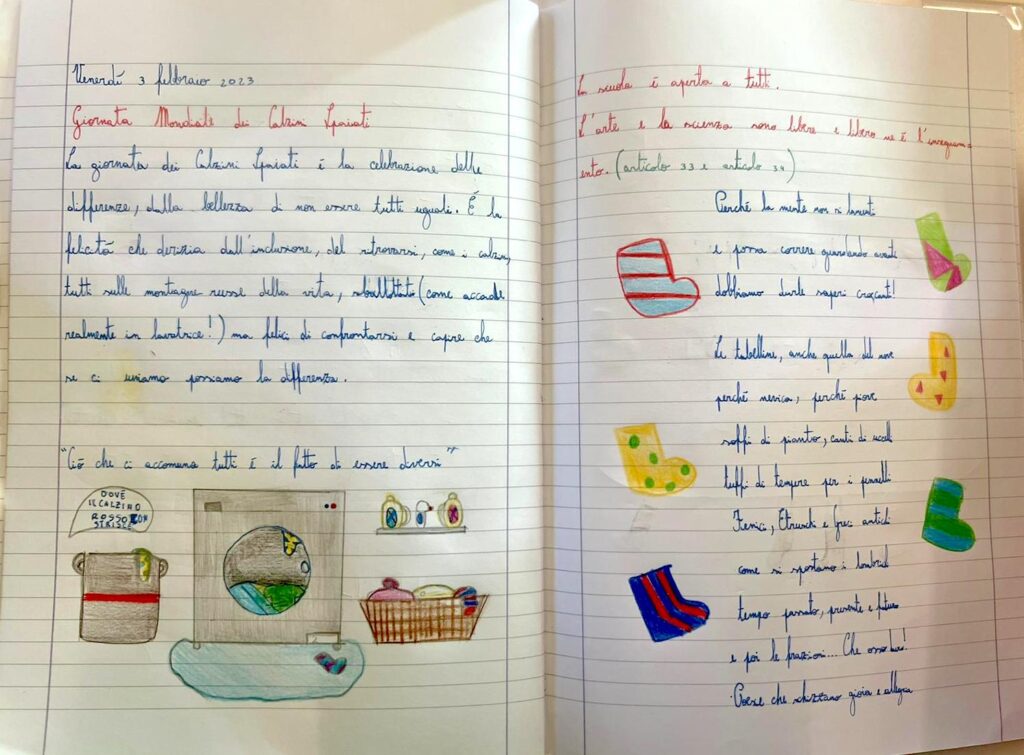 Venerdí 3 febbraio 2023
Giornata Mondiale dei Calzini Spaiati
La giornata dei Calzini Spaiati é la celebrazione delle
differenze, dalla bellezza di non essere tutti uguali. É la
felicitá che derizia dall'inclusione, del ritrovarsi, come i calzini,
tutti sulle montagne russe della vita, sballottati (come accade
realmente in lavatrice!) ma felici di confrontarsi e capire che
se ci uniamo possiamo la differenza.
"Ció che ci accomuna tutti é il fatto di essere diversi"
DOVE
IL CALZINO
ROSSO CON
STRISCE
La scuola é aperta a tutti.
L'arte e la scienza sono libere e libero ne é l'insegnam
ento. (articolo 33 e articolo 34)
Perché la mente non si lamenti
e possa correre guardando avanti
dobbiamo darle saperi croccanti!
Le tabelline, anche quella del nove
perché nevica, perché piove
soffi di pianto, canti di uccelli
tuffi di tempere per i pennelli
Fenici, Etruschi e Greci antichi
come si spostano i lombrichi
tempo passato, presente e futuro
e poi le frazioni... Che osso duro!
Poesie che schizzano gioia e allegria